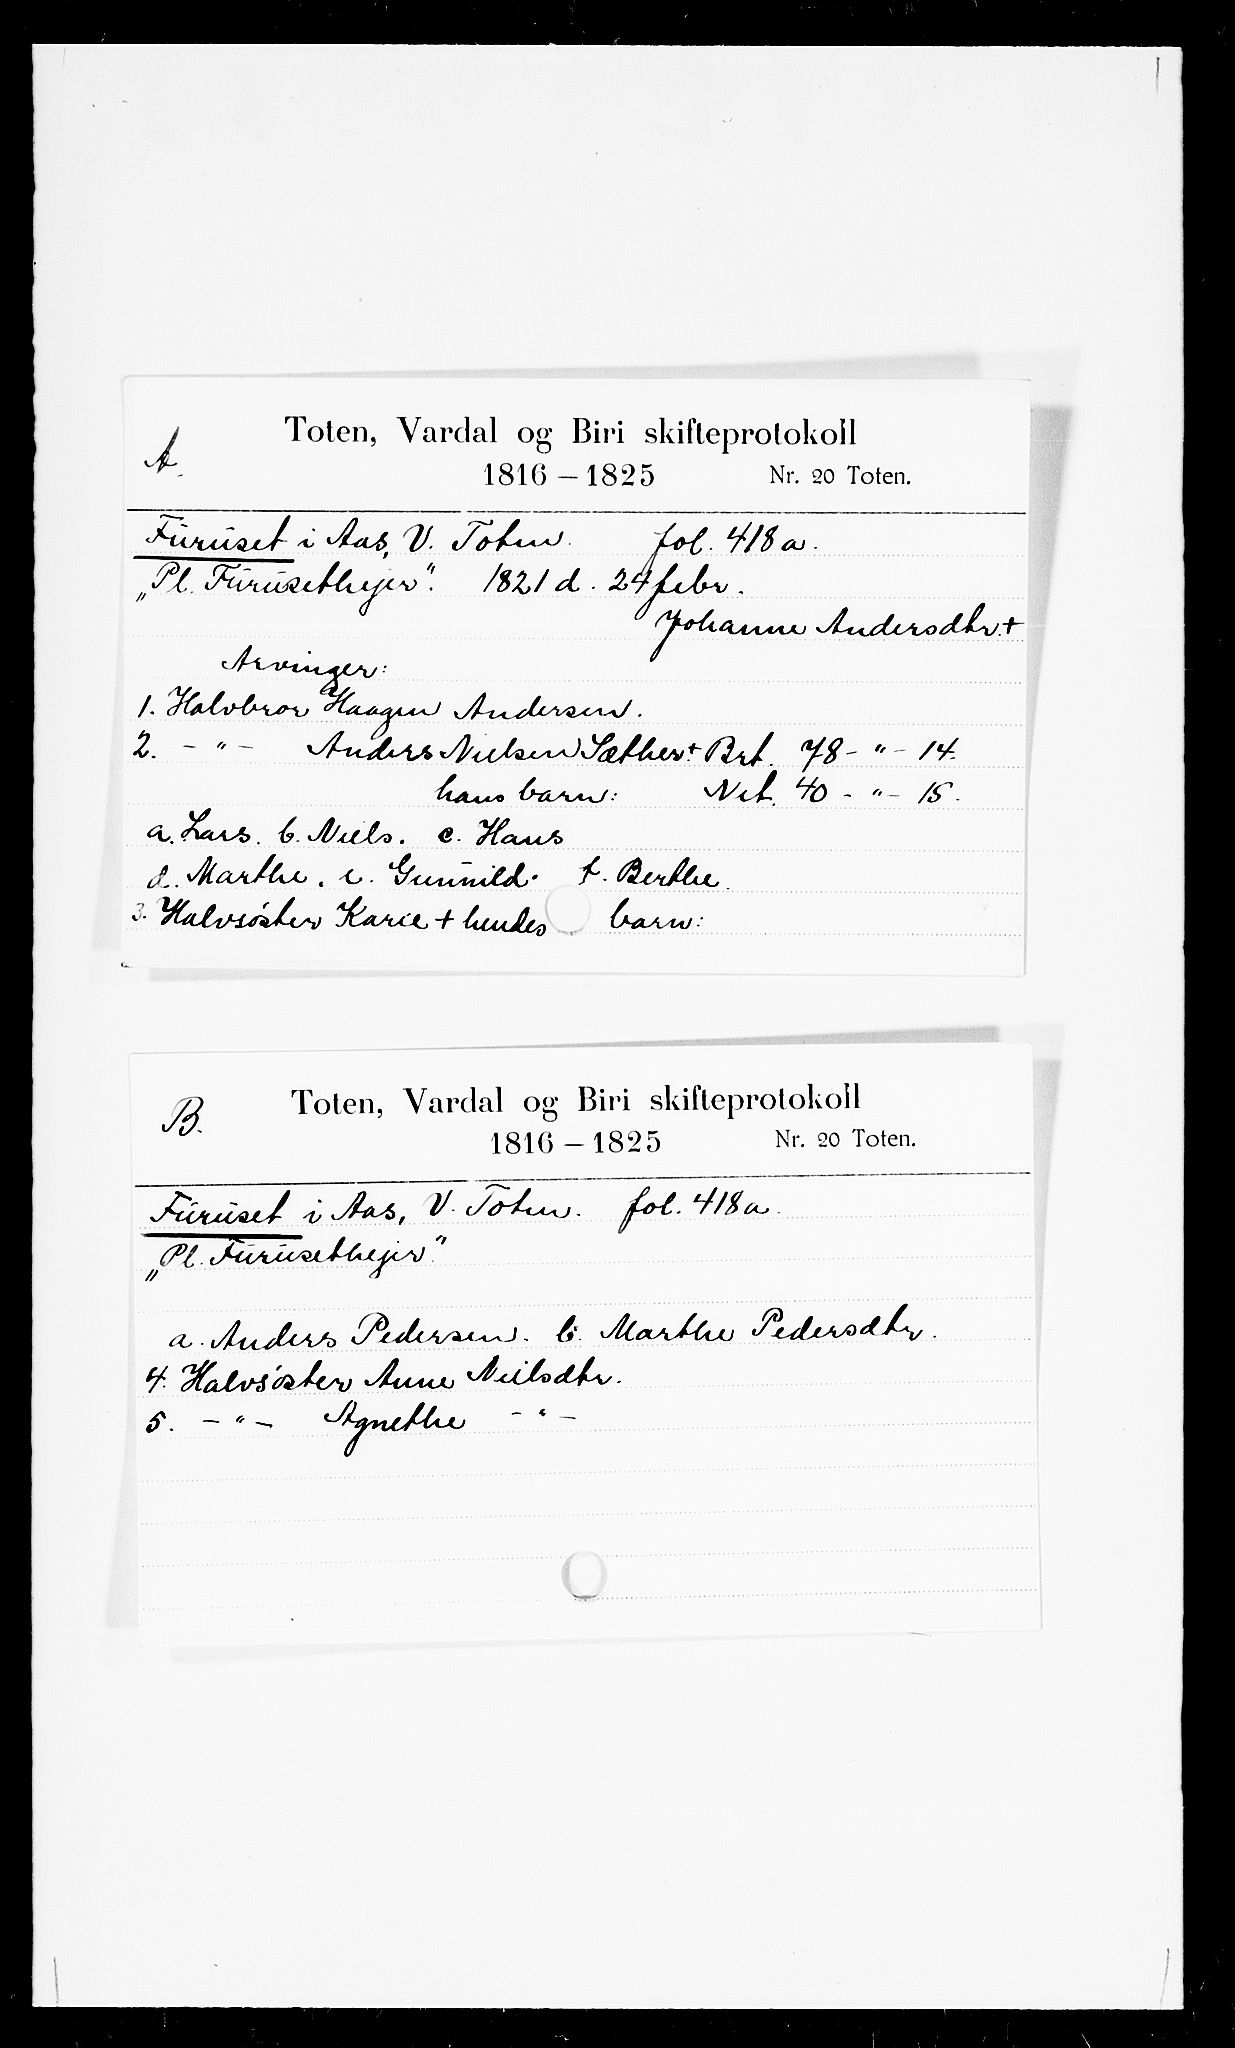 A.
Toten, Vardal og Biri skifteprotokoll
1816 – 1825 Nr. 20 Toten.
Furuset i Aas, V. Toten. fol. 418a.
„Pl. Furusethejer". 1821 d. 24 febr.
Johanne Andersdtr. +
Arvinger:
1. Halvbror Haagen Andersen.
2. - " - Anders Nielsen Sæther + Brt. 78 - " - 14.
hans barn: Net. 40 - " - 15.
a. Lars. b. Niels. c. Hans
d. Marthe. e. Gunnild. f. Berthe.
3. Halvsøster Karie + hendes barn:
B.
Toten, Vardal og Biri skifteprotokoll
1816 – 1825 Nr. 20 Toten.
Furuset i Aas, V. Toten. fol. 418a.
„Pl. Furusethejer"
a. Anders Pedersen. b. Marthe Pedersdtr.
4. Halvsøster Anne Nielsdtr.
5. - " - Agnethe - " -